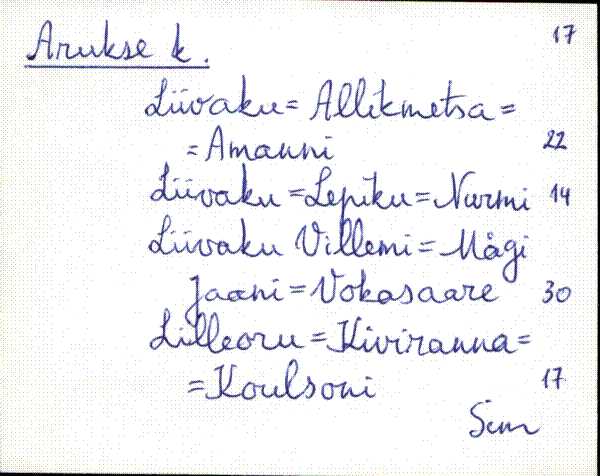 Arukse k. 17
Liivaku = Allikmetsa =
= Amanni 22
Liivaku = Lepiku = Nurmi 14
Liivaku Villemi = Mägi
Jaani = Vokasaare 30
Lilleoru = Kiviranna =
= Koulsoni 17
Sim